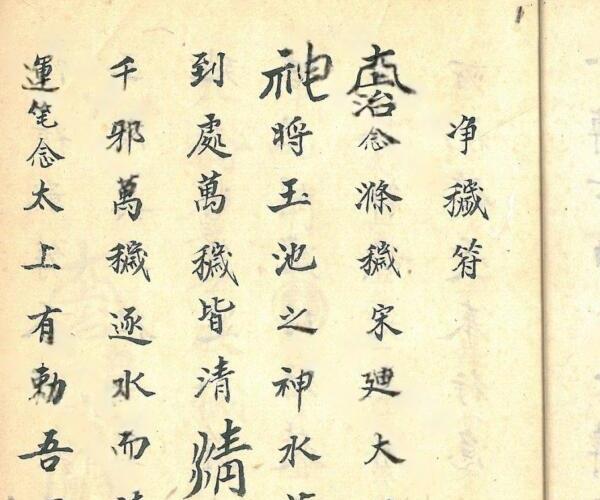 净穢符
念滌穢宋廸大
神將玉池之神水
到處萬穢皆清清
千邪萬穢逐水而
運笔念太上有勅吾